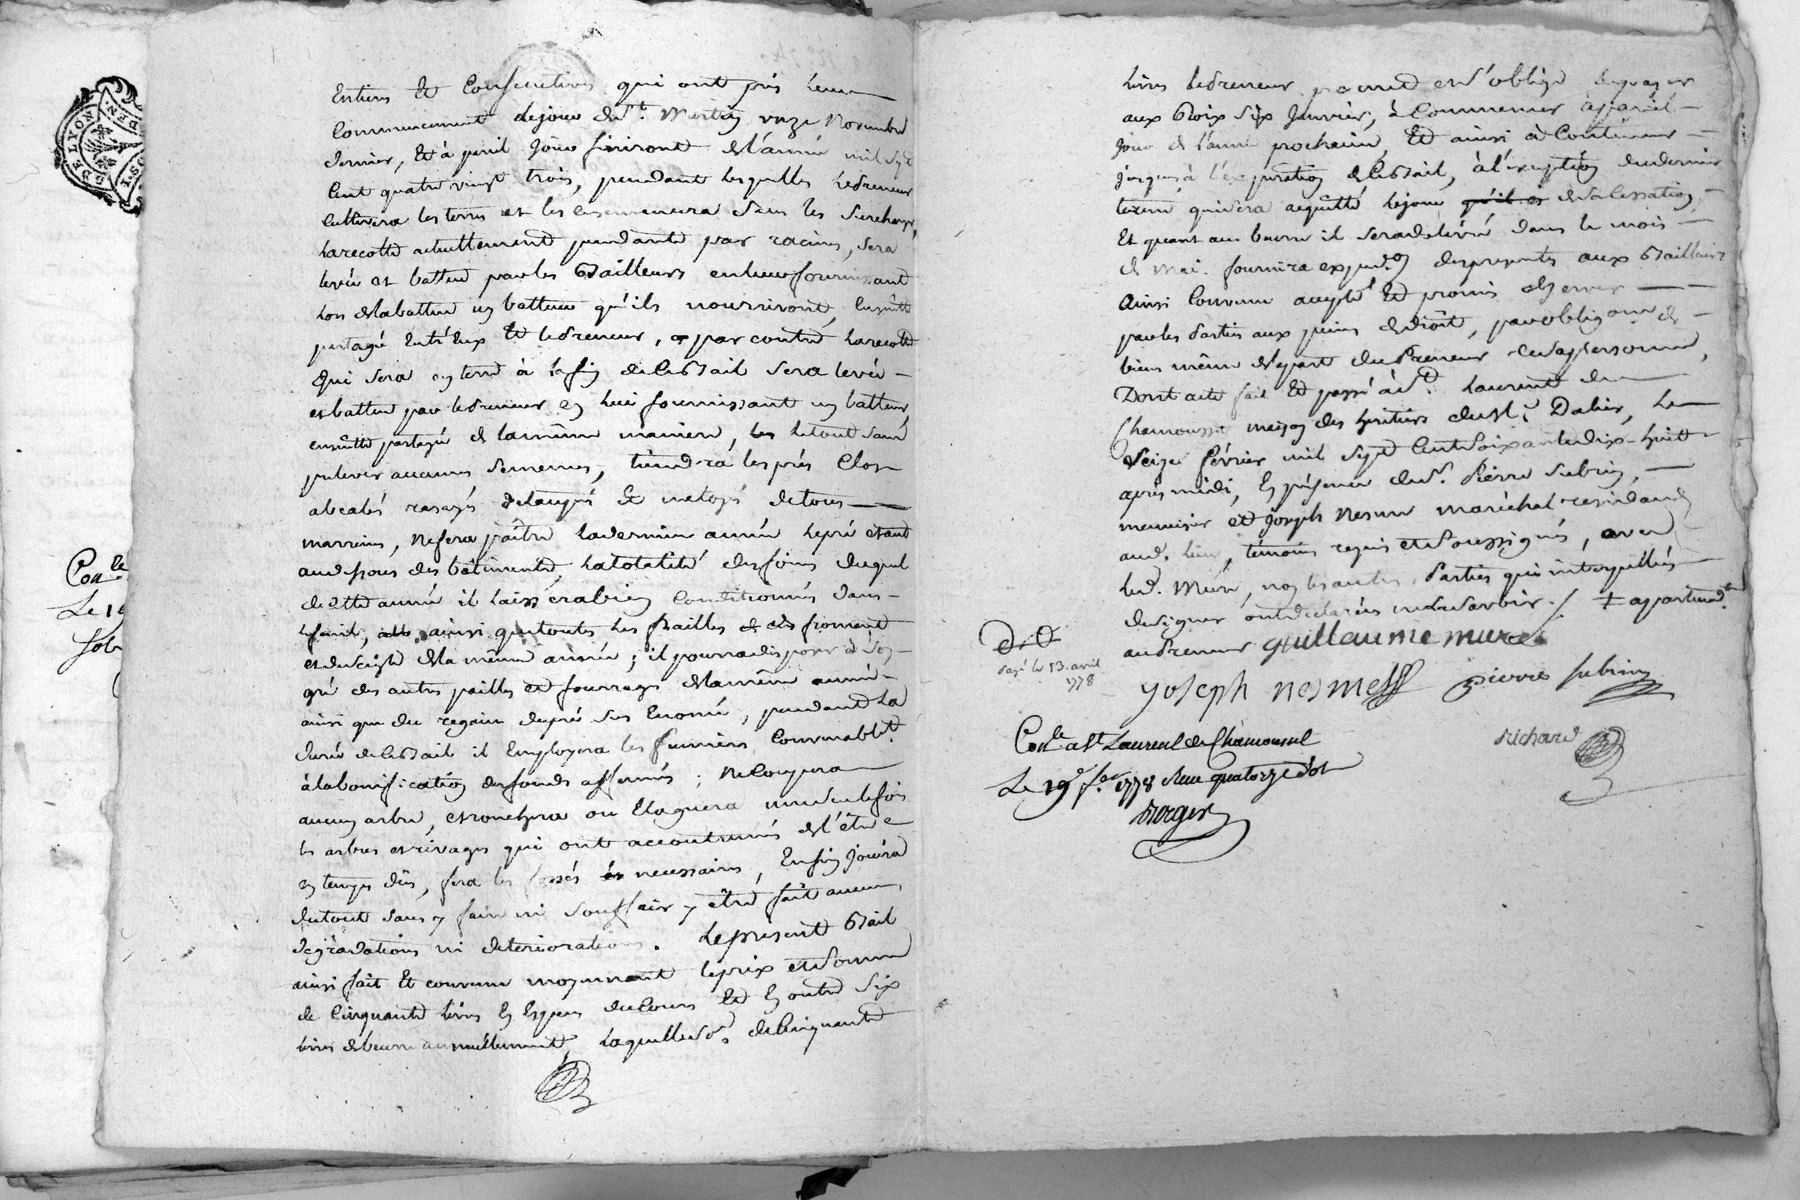 Entiers et Consecutives qui ont pris leur
Commencement dejour de St. Martin onze Novembre
dernier, et à pareil jour finiront de l'année mil sept
Cent quatre vingt trois, pendant lesquelles lepreneur
Cultivera les terres et les ensemencera sans les surcharger,
la recolte actuellement pendante par racines, sera
levée et battue par les Bailleurs enleur fournissant
lors de la battue un batteur qu'ils nourriront, ensuitte
partagé entr'eux et lepreneur, par contre la recolte
qui sera en terre à la fin de ce Bail sera levée
et battue par lepreneur en lui fournissant un batteur,
ensuitte partagée de la même maniere, le tout sans
prelever aucunes semences, tiendra les prés Clos
rasés et netoyés de tous
, ne fera paître la derniere année le pré etant
au dessous des bâtiments, la totalité des foins duquel
de cette année il laissera bien conditionnés dans
le fenil, ainsi que toutes les pailles de froment
et de seigle de la même année; il pourra disposer à son
gré des autres pailles et fourrages de la même année
ainsi que du regain du pré sus enoncé, pendant la
durée de ce Bail il employera les fumiers convenablt.
à la bonification des fonds affermés; ne coupera
aucun arbre, etronchera ou elaguera une seule fois
les arbres et rivages qui ont accoutumés de l'être
en temps dûs, fera les fossés necessaires, enfin jouira
du tout sans y faire ni souffrir y être fait aucunes
degradations ni deteriorations. Le present Bail
ainsi fait et convenu moyennant le prix et somme
de Cinquante livres en especes de Cours et en outre six
livres de beurre annuellement, laquelle so. de Cinquante
livres lepreneur promet et s'oblige de payer
aux Rois six Janvier, à commencer à pareil
jour de l'année prochaine, et ainsi à continuer
jusques à l'expiration de ce Bail, à l'exception du dernier
terme qui sera acquitté le jour de sa cessation,
Et quant au beurre il sera delivré dans le mois
de mai. fournira expedon des presentes aux Bailleurs
Ainsi Convenu accepté et promis observer
par les Parties aux peines de droit, par obligaon de
biens même de la part du Preneur de sa personne,
Dont acte fait et passé à St. Laurent de
Chamousset maison des heritiers du Sr. Dalier, le
seize fevrier mil sept cent soixante dix-huit
après midi, en présence de Sr. Pierre Subrin,
menuisier et Joseph Nesme maréchal residants
aud. lieu, témoins requis et soussignés, avec
led. Mure, non les autres Parties qui interpellées
de signer ont declarées ne le savoir ./. ‡ appartenant
au Preneur guillaume mure
joseph nesme pierre subrin
richard
payé le 13. avril
1778
Conlé a St Laurent de Chamousset
Le 19e fer. 1778 Reçu quatorze sols
Dorger
DE LYON
DEN.
Conlé
Le 19